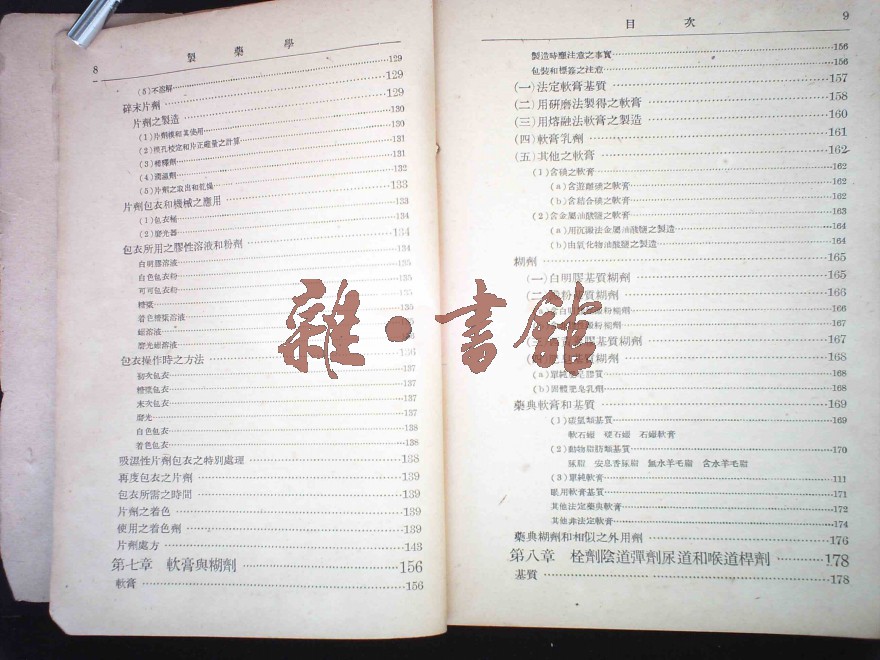 8 製藥學
(5)不溶解 129
碎末片劑 129
片劑之製造 129
(1)片劑模和其使用 130
(2)模孔校定和片正確量之計算 130
(3)稀釋劑 131
(4)潤濕劑 131
(5)片劑之取出和乾燥 132
片劑包衣和機械之應用 133
(1)包衣桶 133
(2)磨光器 134
包衣所用之膠性溶液和粉劑 134
白明膠溶液 134
白色包衣粉 135
可可包衣粉 135
糖漿 135
着色糖漿溶液 135
蠟溶液
磨光蠟溶液
包衣操作時之方法 136
初次包衣 137
糖漿包衣 137
末次包衣 137
磨光 137
白色包衣 138
着色包衣 138
吸濕性片劑包衣之特別處理 138
再度包衣之片劑 139
包衣所需之時間 139
片劑之着色 139
使用之着色劑 139
片劑處方 143
第七章 軟膏與糊劑 156
軟膏 156
目次 9
製造時應注意之事實 156
包裝和標簽之注意 156
(一)法定軟膏基質 157
(二)用研磨法製得之軟膏 158
(三)用熔融法軟膏之製造 160
(四)軟膏乳劑 161
(五)其他之軟膏 162
(1)含碘之軟膏 162
(a)含游離碘之軟膏 162
(b)含結合碘之軟膏 162
(2)含金屬油酸鹽之軟膏 163
(a)用沉澱法金屬油酸鹽之製造 164
(b)由氧化物油酸鹽之製造 164
糊劑 165
(一)白明膠基質糊劑 165
(二)粉基質糊劑 166
粉糊劑 166
粉糊劑 167
膠基質糊劑 167
基質糊劑 168
(a)單純 168
(b)固體肥皂乳劑 168
藥典軟膏和基質 169
(1)碳氫類基質 169
軟石蠟 硬石蠟 石蠟軟膏
(2)動物脂肪類基質 170
豚脂 安息香豚脂 無水羊毛脂 含水羊毛脂
(3)單純軟膏 111
眼用軟膏基質 171
其他法定藥典軟膏 172
其他非法定軟膏 174
藥典糊劑和相似之外用劑 176
第八章 栓劑陰道彈劑尿道和喉道桿劑 178
基質 178
雜·書館